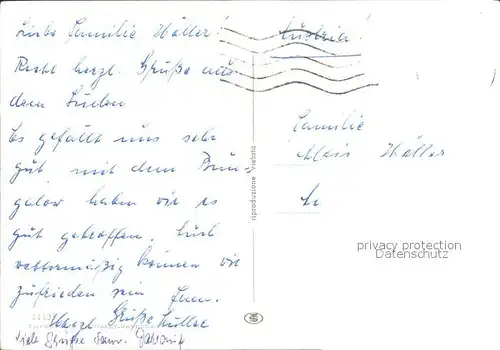 Liebe Familie Höller!
Recht herzl. Grüße aus
dem Süden
Es gefällt uns sehr
gut mit dem Bun-
galow haben wir es
gut getroffen. Auch
wettermäßig können wir
zufrieden sein
Herzl. Grüße Müller
Viele Grüße Fam.
Austria!
Familie
Alois Höller
riproduzione vietata
privacy protection
Datenschutz